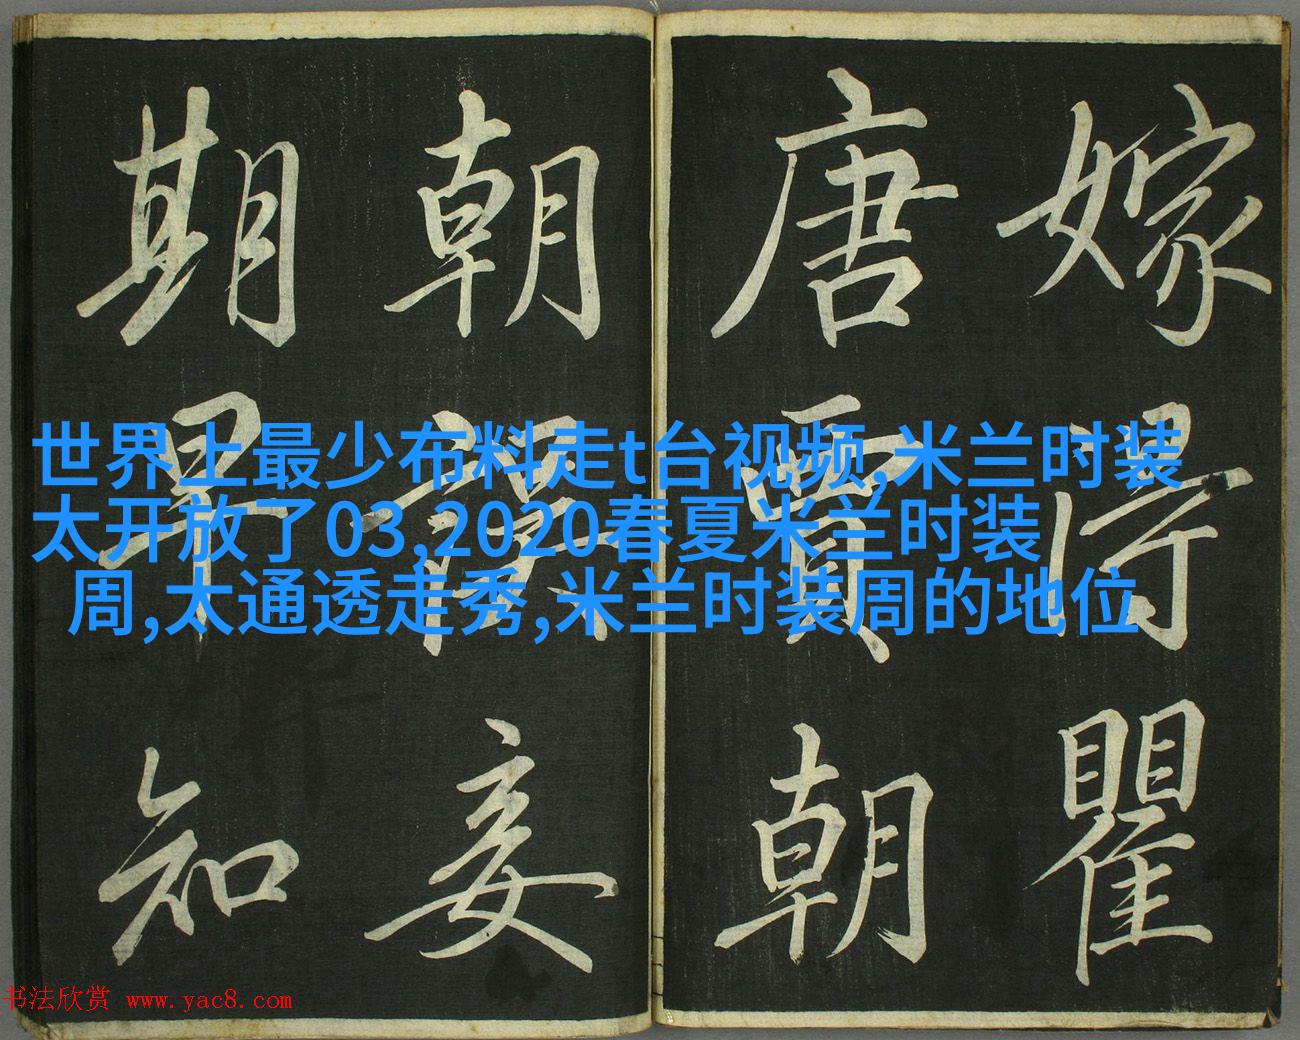 嫁得瞿
唐賈朝
朝誤妾
期早知
世界上最少布料走t台视频,米兰时装
太开放了03,2020春夏米兰时装
周,太通透走秀,米兰时装周的地位
书法欣赏 www.yac8.com